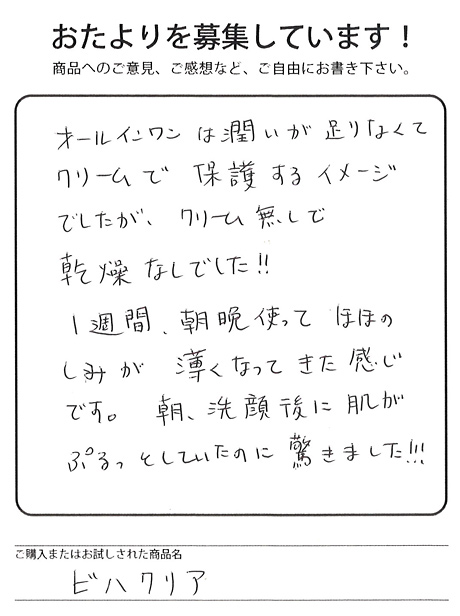 おたよりを募集しています！
商品へのご意見、ご感想など、ご自由にお書き下さい。
オールインワンは潤いが足りなくて
クリームで保護するイメージ
でしたが、クリーム無しで
乾燥なしでした!!
1週間、朝晩使ってほほの
しみが薄くなってきた感じ
です。朝、洗顔後に肌が
ぷるっとしていたのに驚きました!!!
ご購入またはお試しされた商品名
ビハクリア